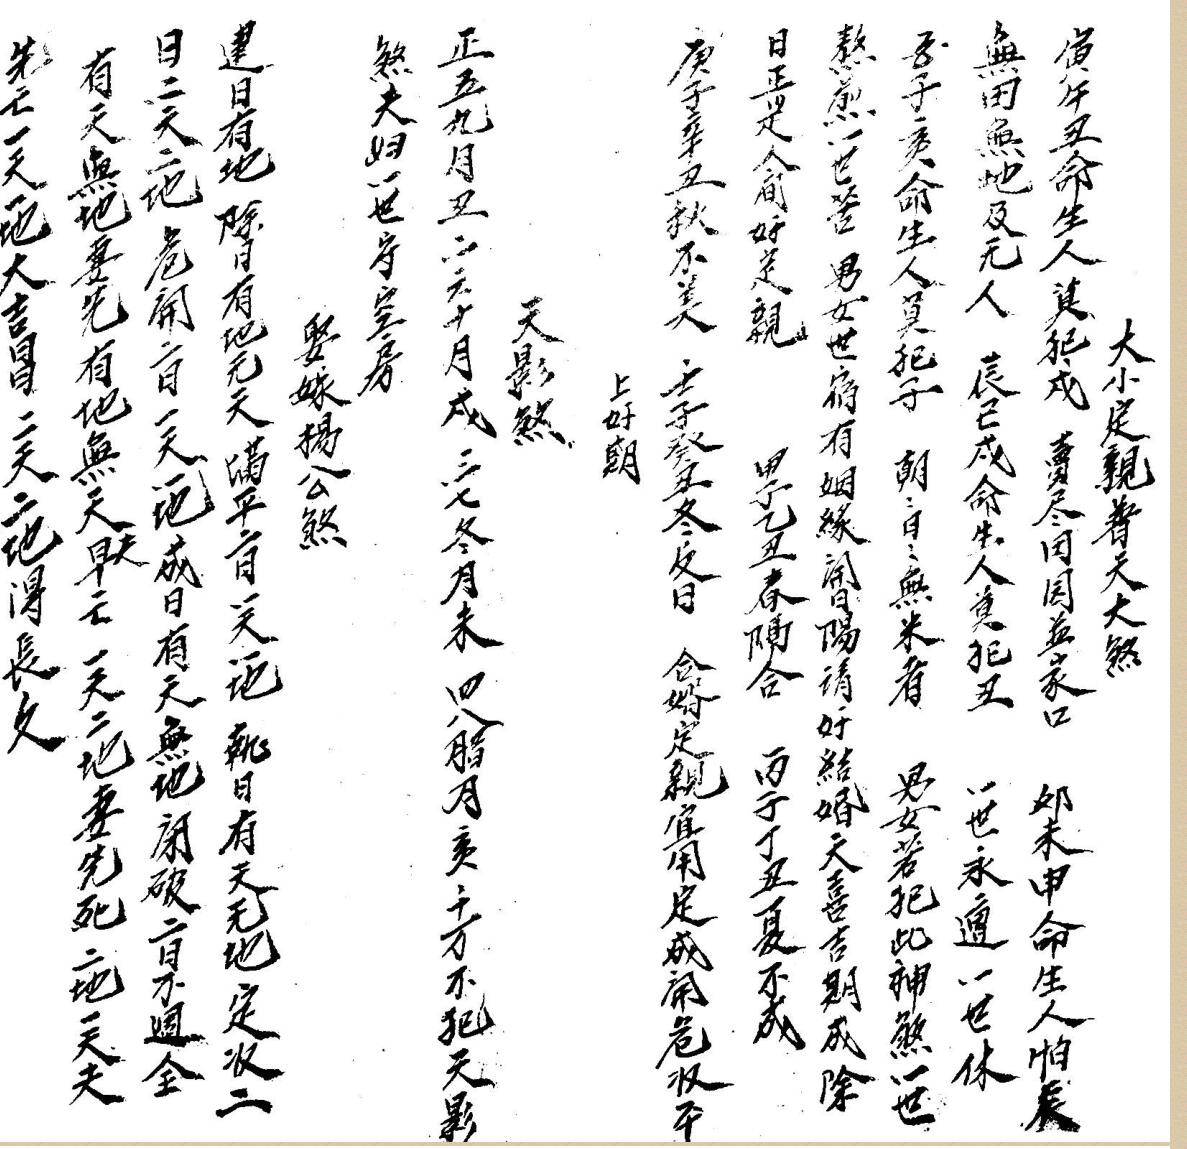 大小定親普天大煞
寅午丑命生人莫犯戌 賣尽田园並家口 卯未申命生人怕辰
無田無地及无人 辰巳戌命生人莫犯丑 一世永遭一世休
子亥命生人莫犯子 朝々日々無米者 男女若犯此神煞一世
熬煎一世苦 男女世宿有姻緣 陽請好結婚 天喜吉期成除
日正是人间好定親 甲子乙丑春隔合 丙子丁丑夏不成
庚子辛丑秋不美 壬子癸丑冬反日 合婚定親宜用定成開危收平
上好期
天影煞
正五九月丑 二六十月戌 三七冬月未 四八腊月亥 千万不犯天影
煞夫妇一世守空房
娶嫁楊公煞
建日有地 除日有地无天 满平二日一天一地 執日有天无地 定收二
日二天二地 危開二日一天一地 成日有天無地 闭破二日不週全
有天無地妻先 有地無天夫早亡 一天二地妻先死 二地一天夫
先亡 一天一地大吉昌 二天二地得長久